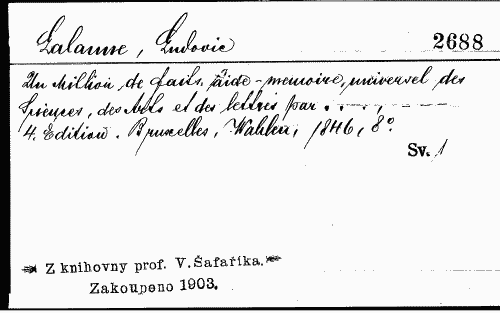 Lalanne, Ludovic 2688
Un Million de faits, aide-memoire, universel des
Sciences, des Arts et des lettres par . . . . ,
4. Edition. Bruxelles, Wahlen, 1846, 8°.
Sv. 1
Z knihovny prof. V. Šafaříka.
Zakoupeno 1903.